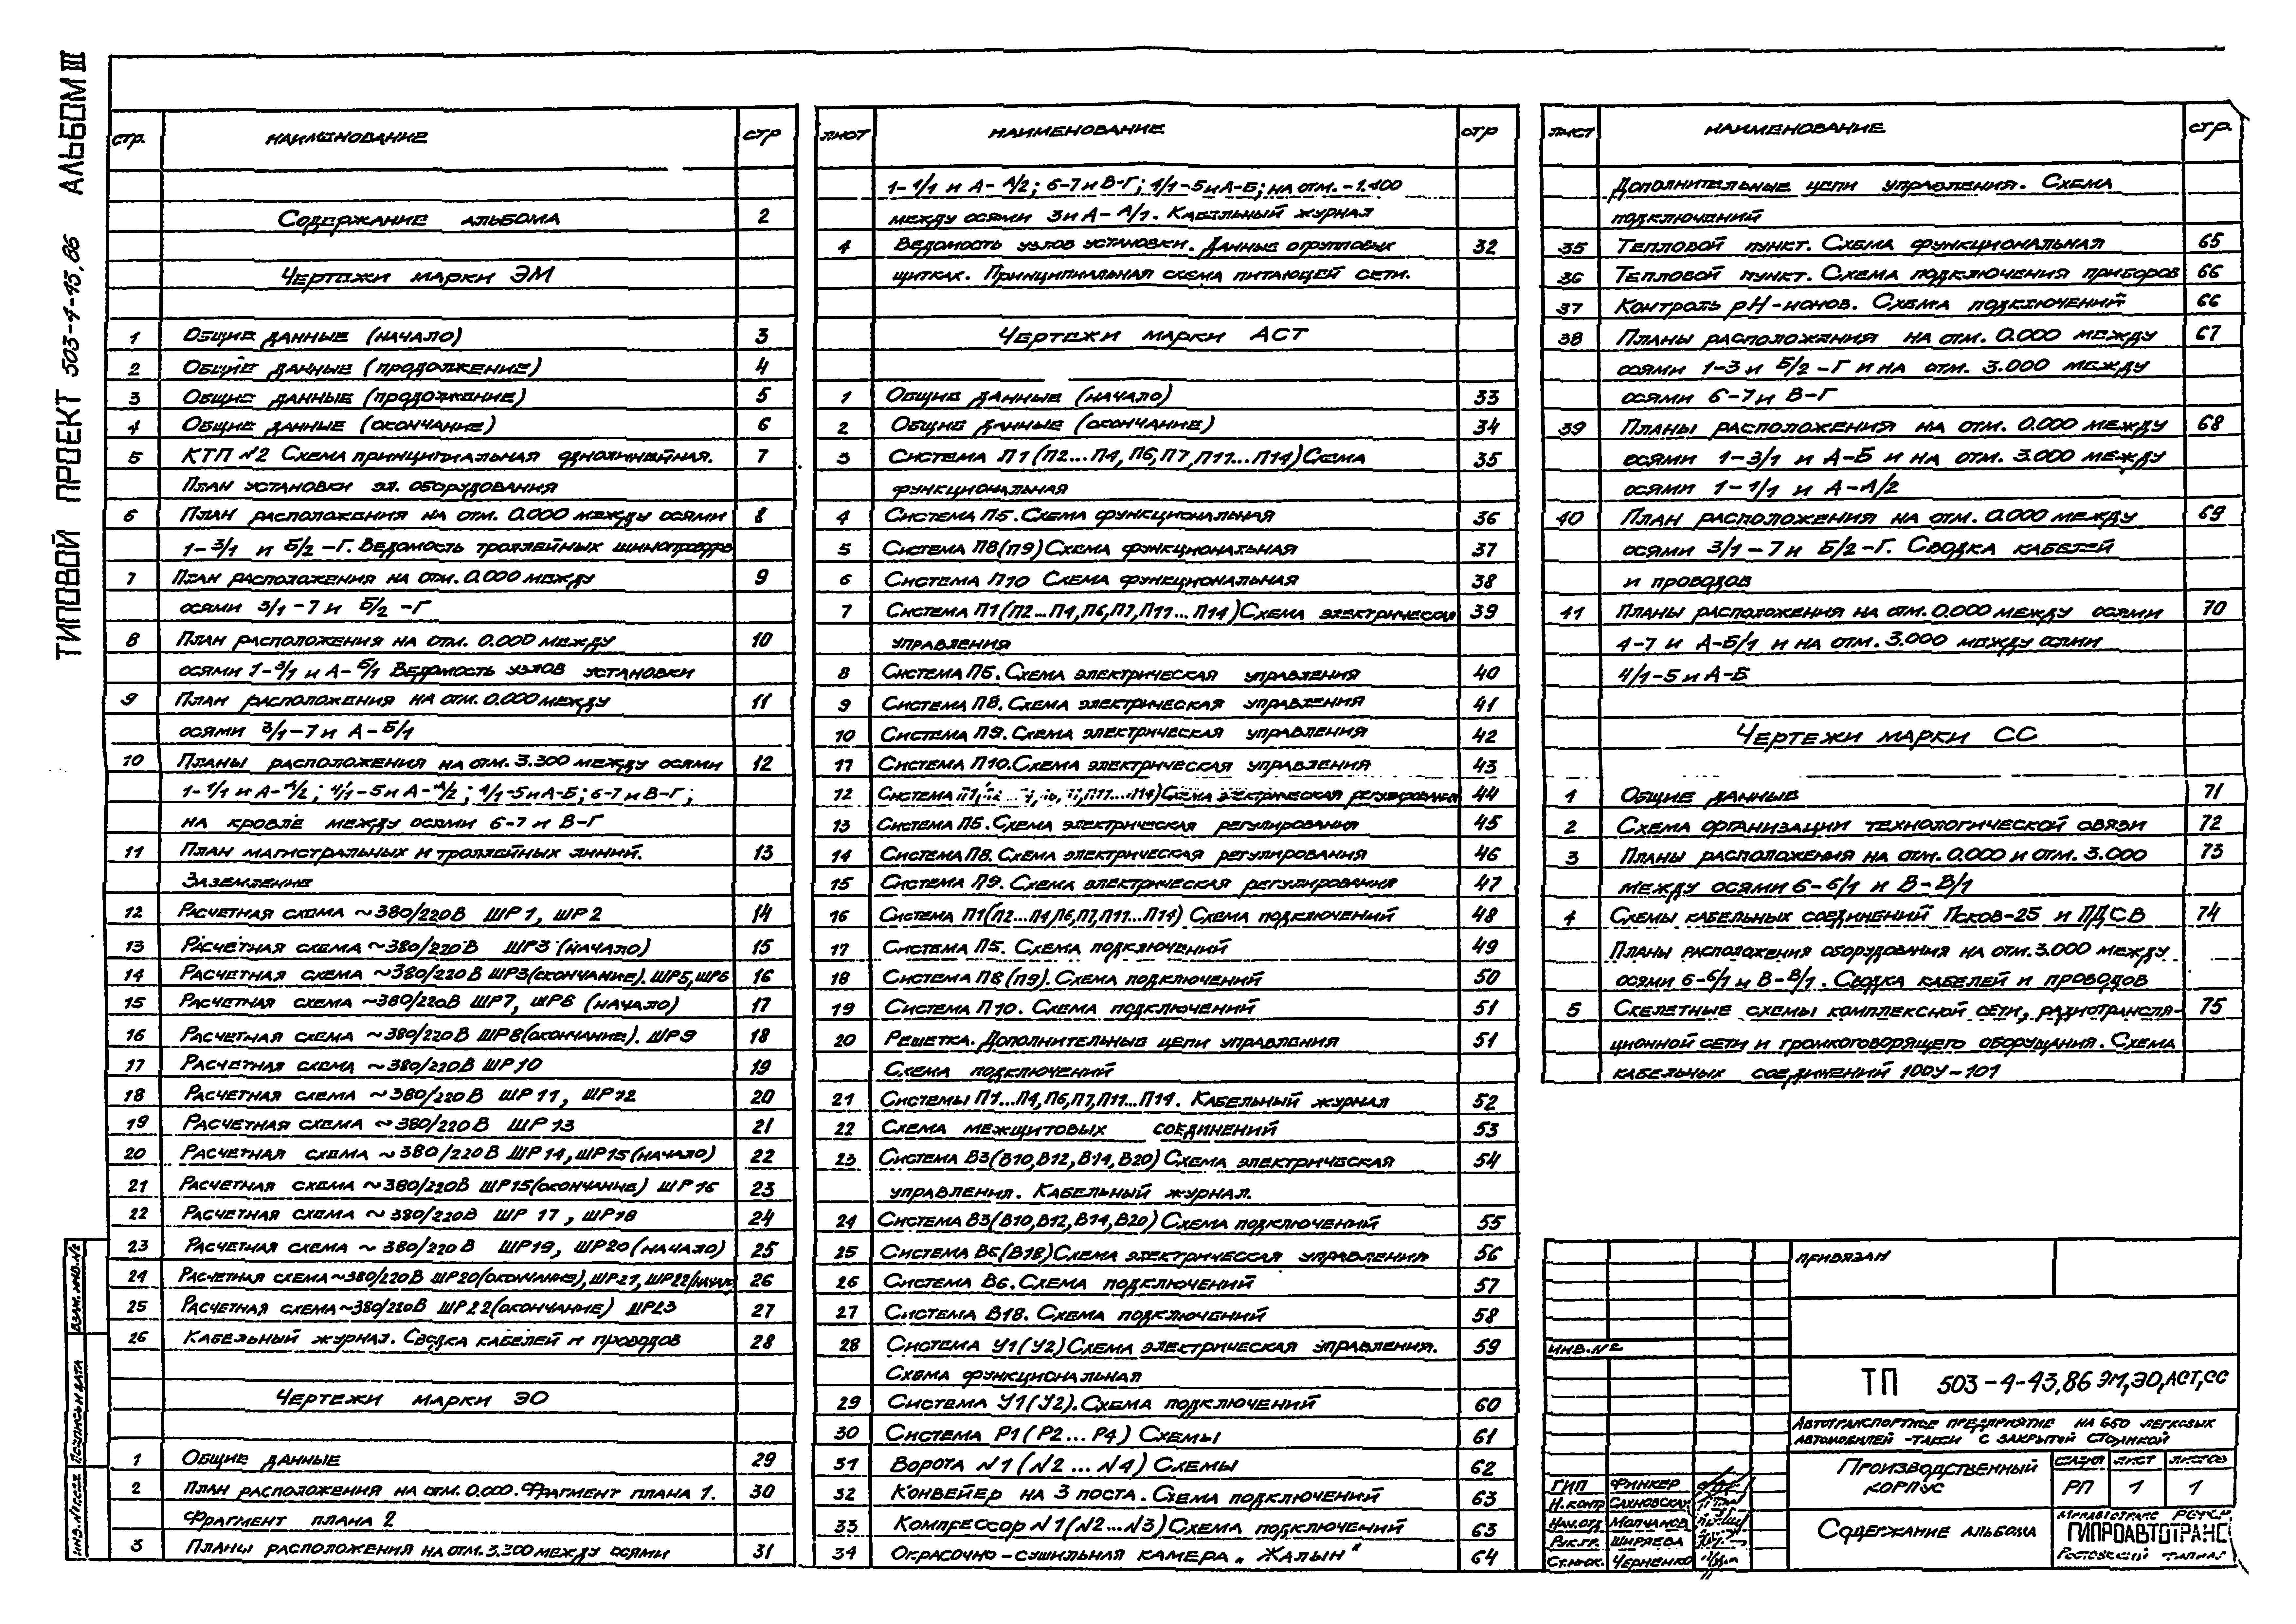 ТИПОВОЙ ПРОЕКТ 503-4-43.86 АЛЬБОМ III
СТР. НАИМЕНОВАНИЕ СТР
СОДЕРЖАНИЕ АЛЬБОМА 2
ЧЕРТЕЖИ МАРКИ ЭМ
1 ОБЩИЕ ДАННЫЕ (НАЧАЛО) 3
2 ОБЩИЕ ДАННЫЕ (ПРОДОЛЖЕНИЕ) 4
3 ОБЩИЕ ДАННЫЕ (ПРОДОЛЖЕНИЕ) 5
4 ОБЩИЕ ДАННЫЕ (ОКОНЧАНИЕ) 6
5 КТП №2 СХЕМА ПРИНЦИПИАЛЬНАЯ ОДНОЛИНЕЙНАЯ. 7
ПЛАН УСТАНОВКИ ЭЛ. ОБОРУДОВАНИЯ
6 ПЛАН РАСПОЛОЖЕНИЯ НА ОТМ. 0.000 МЕЖДУ ОСЯМИ 8
1-3/1 И Б/2-Г. ВЕДОМОСТЬ ТРОЛЛЕЙНЫХ ШИНОПРОВОДОВ
7 ПЛАН РАСПОЛОЖЕНИЯ НА ОТМ. 0.000 МЕЖДУ 9
ОСЯМИ 3/1-7 И Б/2-Г
8 ПЛАН РАСПОЛОЖЕНИЯ НА ОТМ. 0.000 МЕЖДУ 10
ОСЯМИ 1-3/1 И А-Б/1 ВЕДОМОСТЬ УЗЛОВ УСТАНОВКИ
9 ПЛАН РАСПОЛОЖЕНИЯ НА ОТМ. 0.000 МЕЖДУ 11
ОСЯМИ 3/1-7 И А-Б/1
10 ПЛАНЫ РАСПОЛОЖЕНИЯ НА ОТМ. 3.300 МЕЖДУ ОСЯМИ 12
1-1/1 И А-А/2; 4/1-5 И А-А/2; 4/1-5 И А-Б; 6-7 И В-Г;
НА КРОВЛЕ МЕЖДУ ОСЯМИ 6-7 И В-Г
11 ПЛАН МАГИСТРАЛЬНЫХ И ТРОЛЛЕЙНЫХ ЛИНИЙ. 13
ЗАЗЕМЛЕНИЕ
12 РАСЧЕТНАЯ СХЕМА ~380/220В ШР1, ШР2 14
13 РАСЧЕТНАЯ СХЕМА ~380/220В ШР3 (НАЧАЛО) 15
14 РАСЧЕТНАЯ СХЕМА ~380/220В ШР3(ОКОНЧАНИЕ). ШР5, ШР6 16
15 РАСЧЕТНАЯ СХЕМА ~380/220В ШР7, ШР8 (НАЧАЛО) 17
16 РАСЧЕТНАЯ СХЕМА ~380/220В ШР8(ОКОНЧАНИЕ). ШР9 18
17 РАСЧЕТНАЯ СХЕМА ~380/220В ШР10 19
18 РАСЧЕТНАЯ СХЕМА ~380/220В ШР11, ШР12 20
19 РАСЧЕТНАЯ СХЕМА ~380/220В ШР13 21
20 РАСЧЕТНАЯ СХЕМА ~380/220В ШР14, ШР15(НАЧАЛО) 22
21 РАСЧЕТНАЯ СХЕМА ~380/220В ШР15(ОКОНЧАНИЕ) ШР16 23
22 РАСЧЕТНАЯ СХЕМА ~380/220В ШР17, ШР18 24
23 РАСЧЕТНАЯ СХЕМА ~380/220В ШР19, ШР20(НАЧАЛО) 25
24 РАСЧЕТНАЯ СХЕМА ~380/220В ШР20(ОКОНЧАНИЕ), ШР21, ШР22(НАЧАЛ 26
25 РАСЧЕТНАЯ СХЕМА ~380/220В ШР22(ОКОНЧАНИЕ) ШР23 27
26 КАБЕЛЬНЫЙ ЖУРНАЛ. СВОДКА КАБЕЛЕЙ И ПРОВОДОВ 28
ЧЕРТЕЖИ МАРКИ ЭО
1 ОБЩИЕ ДАННЫЕ 29
2 ПЛАН РАСПОЛОЖЕНИЯ НА ОТМ. 0.000. ФРАГМЕНТ ПЛАНА 1. 30
ФРАГМЕНТ ПЛАНА 2
3 ПЛАНЫ РАСПОЛОЖЕНИЯ НА ОТМ. 3.300 МЕЖДУ ОСЯМИ 31
ЛИСТ НАИМЕНОВАНИЕ СТР
1-1/1 И А-А/2; 6-7 И В-Г; 4/1-5 И А-Б; НА ОТМ. -1.400
МЕЖДУ ОСЯМИ 3 И А-А/1. КАБЕЛЬНЫЙ ЖУРНАЛ
4 ВЕДОМОСТЬ УЗЛОВ УСТАНОВКИ. ДАННЫЕ О ГРУППОВЫХ 32
ЩИТКАХ. ПРИНЦИПИАЛЬНАЯ СХЕМА ПИТАЮЩЕЙ СЕТИ.
ЧЕРТЕЖИ МАРКИ АСТ
1 ОБЩИЕ ДАННЫЕ (НАЧАЛО) 33
2 ОБЩИЕ ДАННЫЕ (ОКОНЧАНИЕ) 34
3 СИСТЕМА П1(П2...П4, П6, П7, П11...П14) СХЕМА 35
ФУНКЦИОНАЛЬНАЯ
4 СИСТЕМА П5. СХЕМА ФУНКЦИОНАЛЬНАЯ 36
5 СИСТЕМА П8(П9) СХЕМА ФУНКЦИОНАЛЬНАЯ 37
6 СИСТЕМА П10 СХЕМА ФУНКЦИОНАЛЬНАЯ 38
7 СИСТЕМА П1(П2...П4, П6, П7, П11...П14) СХЕМА ЭЛЕКТРИЧЕСКАЯ 39
УПРАВЛЕНИЯ
8 СИСТЕМА П5. СХЕМА ЭЛЕКТРИЧЕСКАЯ УПРАВЛЕНИЯ 40
9 СИСТЕМА П8. СХЕМА ЭЛЕКТРИЧЕСКАЯ УПРАВЛЕНИЯ 41
10 СИСТЕМА П9. СХЕМА ЭЛЕКТРИЧЕСКАЯ УПРАВЛЕНИЯ 42
11 СИСТЕМА П10. СХЕМА ЭЛЕКТРИЧЕСКАЯ УПРАВЛЕНИЯ 43
12 СИСТЕМА П11...П14) СХЕМА ЭЛЕКТРИЧЕСКАЯ РЕГУЛИРОВАНИЯ 44
13 СИСТЕМА П5. СХЕМА ЭЛЕКТРИЧЕСКАЯ РЕГУЛИРОВАНИЯ 45
14 СИСТЕМА П8. СХЕМА ЭЛЕКТРИЧЕСКАЯ РЕГУЛИРОВАНИЯ 46
15 СИСТЕМА П9. СХЕМА ЭЛЕКТРИЧЕСКАЯ РЕГУЛИРОВАНИЯ 47
16 СИСТЕМА П1(П2...П4, П6, П7, П11...П14) СХЕМА ПОДКЛЮЧЕНИЙ 48
17 СИСТЕМА П5. СХЕМА ПОДКЛЮЧЕНИЙ 49
18 СИСТЕМА П8(П9). СХЕМА ПОДКЛЮЧЕНИЙ 50
19 СИСТЕМА П10. СХЕМА ПОДКЛЮЧЕНИЙ 51
20 РЕШЕТКА. ДОПОЛНИТЕЛЬНЫЕ ЦЕПИ УПРАВЛЕНИЯ 51
СХЕМА ПОДКЛЮЧЕНИЙ
21 СИСТЕМЫ П1...П4, П6, П7, П11...П14. КАБЕЛЬНЫЙ ЖУРНАЛ 52
22 СХЕМА МЕЖЩИТОВЫХ СОЕДИНЕНИЙ 53
23 СИСТЕМА В3(В10, В12, В14, В20) СХЕМА ЭЛЕКТРИЧЕСКАЯ 54
УПРАВЛЕНИЯ. КАБЕЛЬНЫЙ ЖУРНАЛ.
24 СИСТЕМА В3(В10, В12, В14, В20) СХЕМА ПОДКЛЮЧЕНИЙ 55
25 СИСТЕМА В6(В18) СХЕМА ЭЛЕКТРИЧЕСКАЯ УПРАВЛЕНИЯ 56
26 СИСТЕМА В6. СХЕМА ПОДКЛЮЧЕНИЙ 57
27 СИСТЕМА В18. СХЕМА ПОДКЛЮЧЕНИЙ 58
28 СИСТЕМА У1(У2) СХЕМА ЭЛЕКТРИЧЕСКАЯ УПРАВЛЕНИЯ. 59
СХЕМА ФУНКЦИОНАЛЬНАЯ
29 СИСТЕМА У1(У2). СХЕМА ПОДКЛЮЧЕНИЙ 60
30 СИСТЕМА Р1(Р2...Р4) СХЕМЫ 61
31 ВОРОТА №1(№2...№4) СХЕМЫ 62
32 КОНВЕЙЕР НА 3 ПОСТА. СХЕМА ПОДКЛЮЧЕНИЙ 63
33 КОМПРЕССОР №1(№2...№3) СХЕМА ПОДКЛЮЧЕНИЙ 63
34 ОКРАСОЧНО-СУШИЛЬНАЯ КАМЕРА „ЖАЛЫН" 64
ЛИСТ НАИМЕНОВАНИЕ СТР.
ДОПОЛНИТЕЛЬНЫЕ ЦЕПИ УПРАВЛЕНИЯ. СХЕМА
ПОДКЛЮЧЕНИЙ
35 ТЕПЛОВОЙ ПУНКТ. СХЕМА ФУНКЦИОНАЛЬНАЯ 65
36 ТЕПЛОВОЙ ПУНКТ. СХЕМА ПОДКЛЮЧЕНИЯ ПРИБОРОВ 66
37 КОНТРОЛЬ рН-ИОНОВ. СХЕМА ПОДКЛЮЧЕНИЙ 66
38 ПЛАНЫ РАСПОЛОЖЕНИЯ НА ОТМ. 0.000 МЕЖДУ 67
ОСЯМИ 1-3 И Б/2-Г И НА ОТМ. 3.000 МЕЖДУ
ОСЯМИ 6-7 И В-Г
39 ПЛАНЫ РАСПОЛОЖЕНИЯ НА ОТМ. 0.000 МЕЖДУ 68
ОСЯМИ 1-3/1 И А-Б И НА ОТМ. 3.000 МЕЖДУ
ОСЯМИ 1-1/1 И А-А/2
40 ПЛАН РАСПОЛОЖЕНИЯ НА ОТМ. 0.000 МЕЖДУ 69
ОСЯМИ 3/1-7 И Б/2-Г. СВОДКА КАБЕЛЕЙ
И ПРОВОДОВ
41 ПЛАНЫ РАСПОЛОЖЕНИЯ НА ОТМ. 0.000 МЕЖДУ ОСЯМИ 70
4-7 И А-Б/1 И НА ОТМ. 3.000 МЕЖДУ ОСЯМИ
4/1-5 И А-Б
ЧЕРТЕЖИ МАРКИ СС
1 ОБЩИЕ ДАННЫЕ 71
2 СХЕМА ОРГАНИЗАЦИИ ТЕХНОЛОГИЧЕСКОЙ СВЯЗИ 72
3 ПЛАНЫ РАСПОЛОЖЕНИЯ НА ОТМ. 0.000 И ОТМ. 3.000 73
МЕЖДУ ОСЯМИ 6-6/1 И В-В/1
4 СХЕМЫ КАБЕЛЬНЫХ СОЕДИНЕНИЙ ПСКОВ-25 И ПДСВ 74
ПЛАНЫ РАСПОЛОЖЕНИЯ ОБОРУДОВАНИЯ НА ОТМ. 3.000 МЕЖДУ
ОСЯМИ 6-6/1 И В-В/1. СВОДКА КАБЕЛЕЙ И ПРОВОДОВ
5 СКЕЛЕТНЫЕ СХЕМЫ КОМПЛЕКСНОЙ СЕТИ, РАДИОТРАНСЛЯ- 75
ЦИОННОЙ СЕТИ И ГРОМКОГОВОРЯЩЕГО ОБОРУЩАНИЯ. СХЕМА
КАБЕЛЬНЫХ СОЕДИНЕНИЙ 100У-101
ПРИВЯЗАН
ИНВ.№
ТП 503-4-43,86 ЭМ, ЭО, АСТ, СС
АВТОТРАНСПОРТНОЕ ПРЕДПРИЯТИЕ НА 650 ЛЕГКОВЫХ
АВТОМОБИЛЕЙ-ТАКСИ С ЗАКРЫТОЙ СТОЯНКОЙ
ПРОИЗВОДСТВЕННЫЙ КОРПУС
СТАДИЯ ЛИСТ ЛИСТОВ
РП 1 1
ГИП ФИНКЕР
Н.КОНТР САХНОВСКАЯ
НАЧ.ОТД МОЛЧАНОВ
РУК.ГР. ШИРЯЕВА
СТ.ИНЖ. ЧЕРНЕНКО
СОДЕРЖАНИЕ АЛЬБОМА
МИНАВТОТРАНС РСФСР
ГИПРОАВТОТРАНС
РОСТОВСКИЙ ФИЛИАЛ
ВЗАМ. ИНВ.№
ПОДПИСЬ И ДАТА
ИНВ.№ ПОДЛ